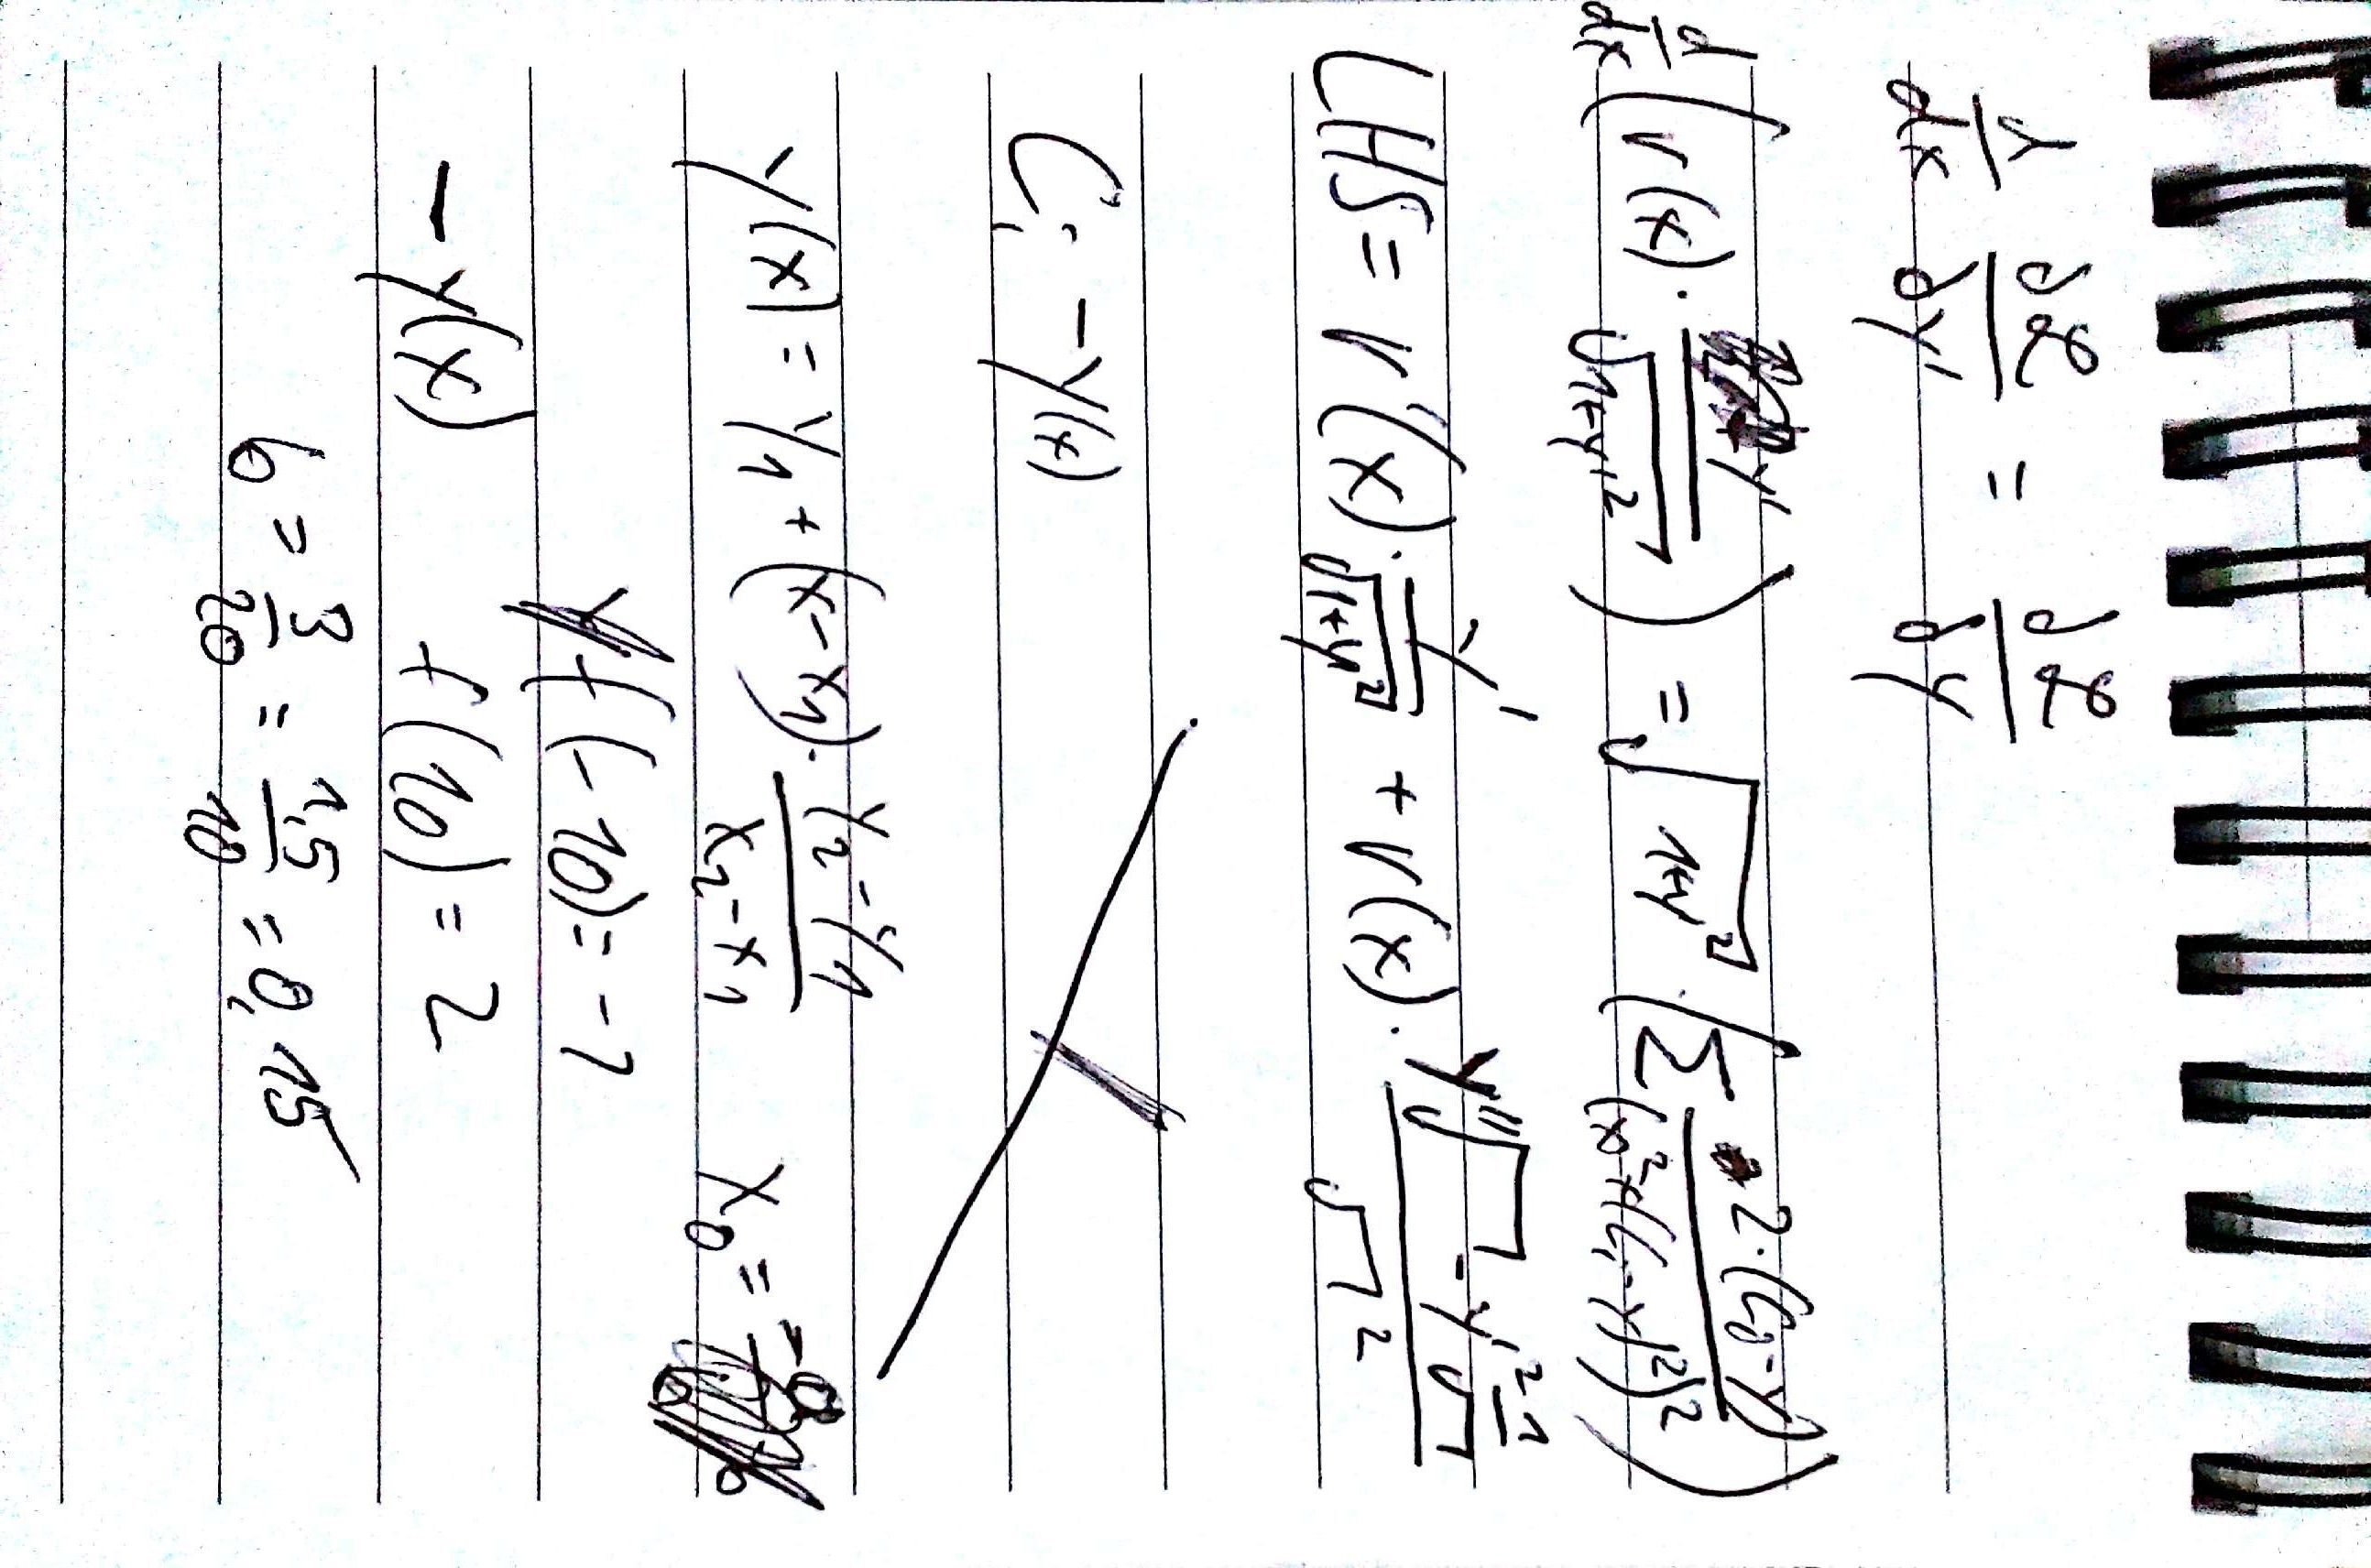 d/dx ∂ℒ/∂y' = ∂ℒ/∂y
d/dx ( V(x) · y'/√(1+y'²) ) = √(1+y'²) · ( Σ 2·(Ci-y)/(x²+(Ci-y)²)² )
LHS = V'(x) · y'/√(1+y'²) + V(x) · (y''√ - y'² 1/√)/√²
Ci - y(x)
y(x) = y1 + (x-x1) · (y2-y1)/(x2-x1) x0 =
f(-10) = -1
-y(x) f(10) = 2
6 = 3/20 = 1,5/10 = 0,15